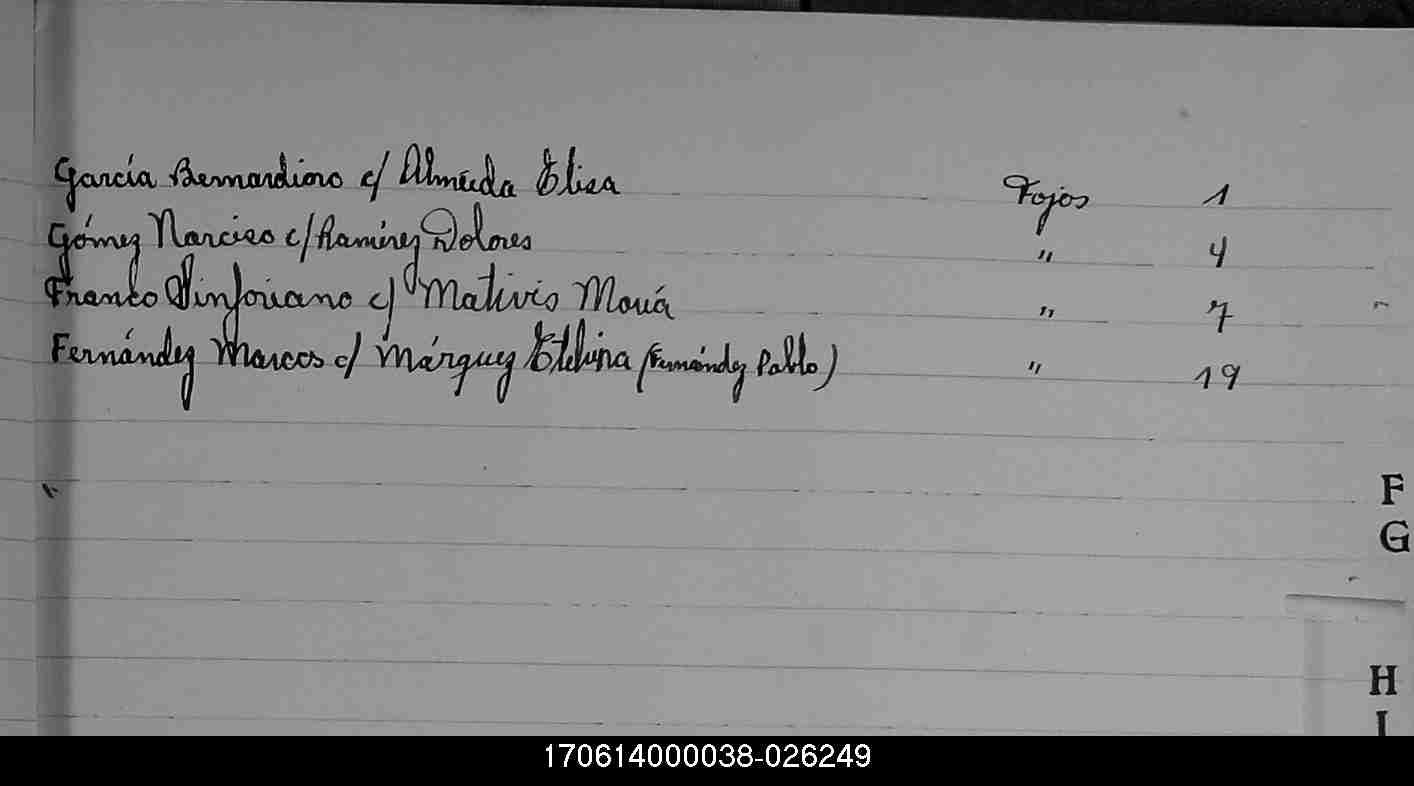 García Bernardino c/ Almeida Elisa Fojos 1
Gómez Narciso c/ Ramírez Dolores " 4
Franco Sinforiano c/ Mativis María " 7
Fernández Marcos c/ Márquez Etelvina (Fernández Pablo) " 19
F
G
H
I
170614000038-026249